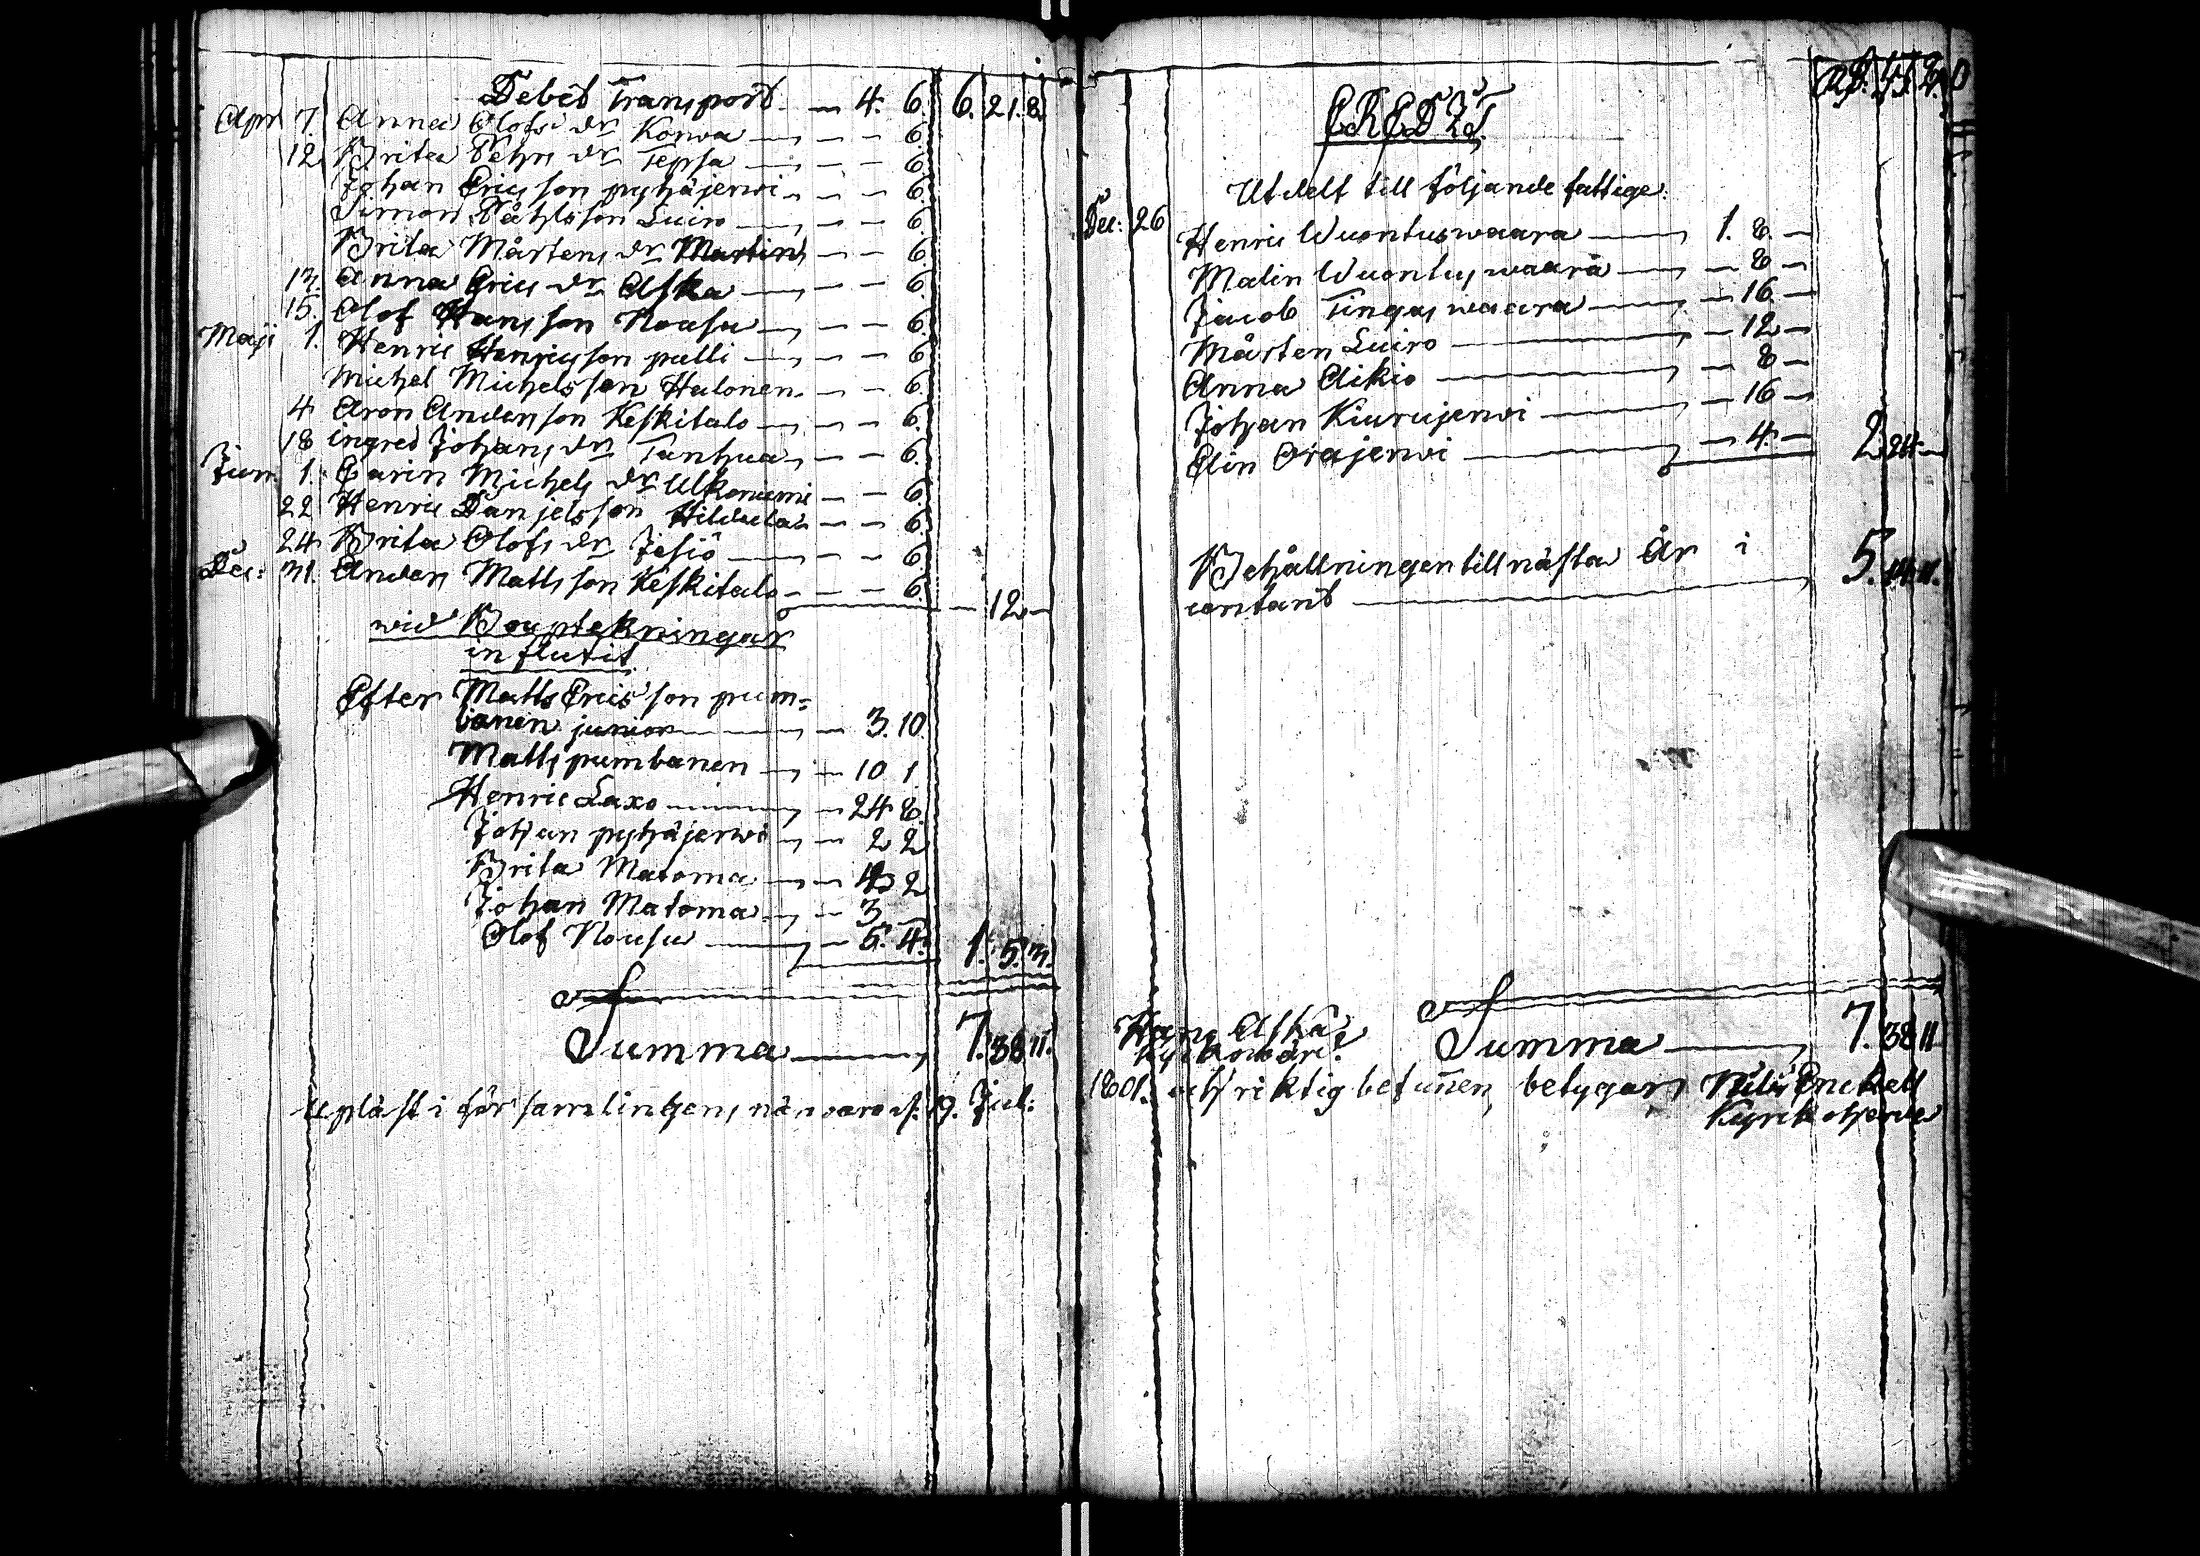 Debet Transport — 4. 6. 6. 21. 8.
Apr 7. Anna Olofs dr Korwa — — 6.
12 Brita Pehrs dr Tepsa — — 6.
Johan Ericsson pyhäjerwi — — 6.
Simon Påhlsson Luiro — — 6.
Brita Mårtens dr Martin — — 6.
13. Anna Erics dr Aska — — 6.
15. Olof Hansson Nousu — — 6.
Maji 1. Henric Henricsson pulli — — 6.
Michel Michelsson Halonen — — 6.
4 Aron Andersson Keskitalo — — 6.
18 ingred Johans dr Tanhua — — 6.
Juni 1. Carin Michels dr Ulkoniemi — — 6.
22 Henric Danjelsson Hildula — — 6.
24 Brita Olofs dr Jesiö — — 6.
Dec: 31. Anders Mattsson Keskitalo — — 6. — 12 —
wid Bouptekningar
influtit
Efter Matts Ericsson pum=
banen junior — 3. 10.
Matts pumbanen — 10 1
Henric Laxo — 24 8.
Johan pyhäjerwi — 2 2
Brita Matoma — 2
Johan Matoma — 3. —
Olof Nousu — 5. 4. 1. 5. 3.
Summa — 7. 38 11.
Upläst i församlingens närvaro d. 19. Jul:
CREDIT
Utdelt till följande fattige:
Dec: 26 Henric Wuontuswaara — 1. 8. —
Malin Wuontuswaara — 8 —
Jacob Tingaswaara — 16 —
Mårten Luiro — 12 —
Anna Aikio — 8 —
Johan Kiurujerwi — 16 —
Elin Orajerwi — 4. — 2. 24. —
Behållningen till nästa År i
contant — 5. 14. 11.
Summa — 7. 38 11
Hans Aska
Kyrkowärd.
1801. och riktig befunnen, betygar Nils Enckell
Kyrkoherde